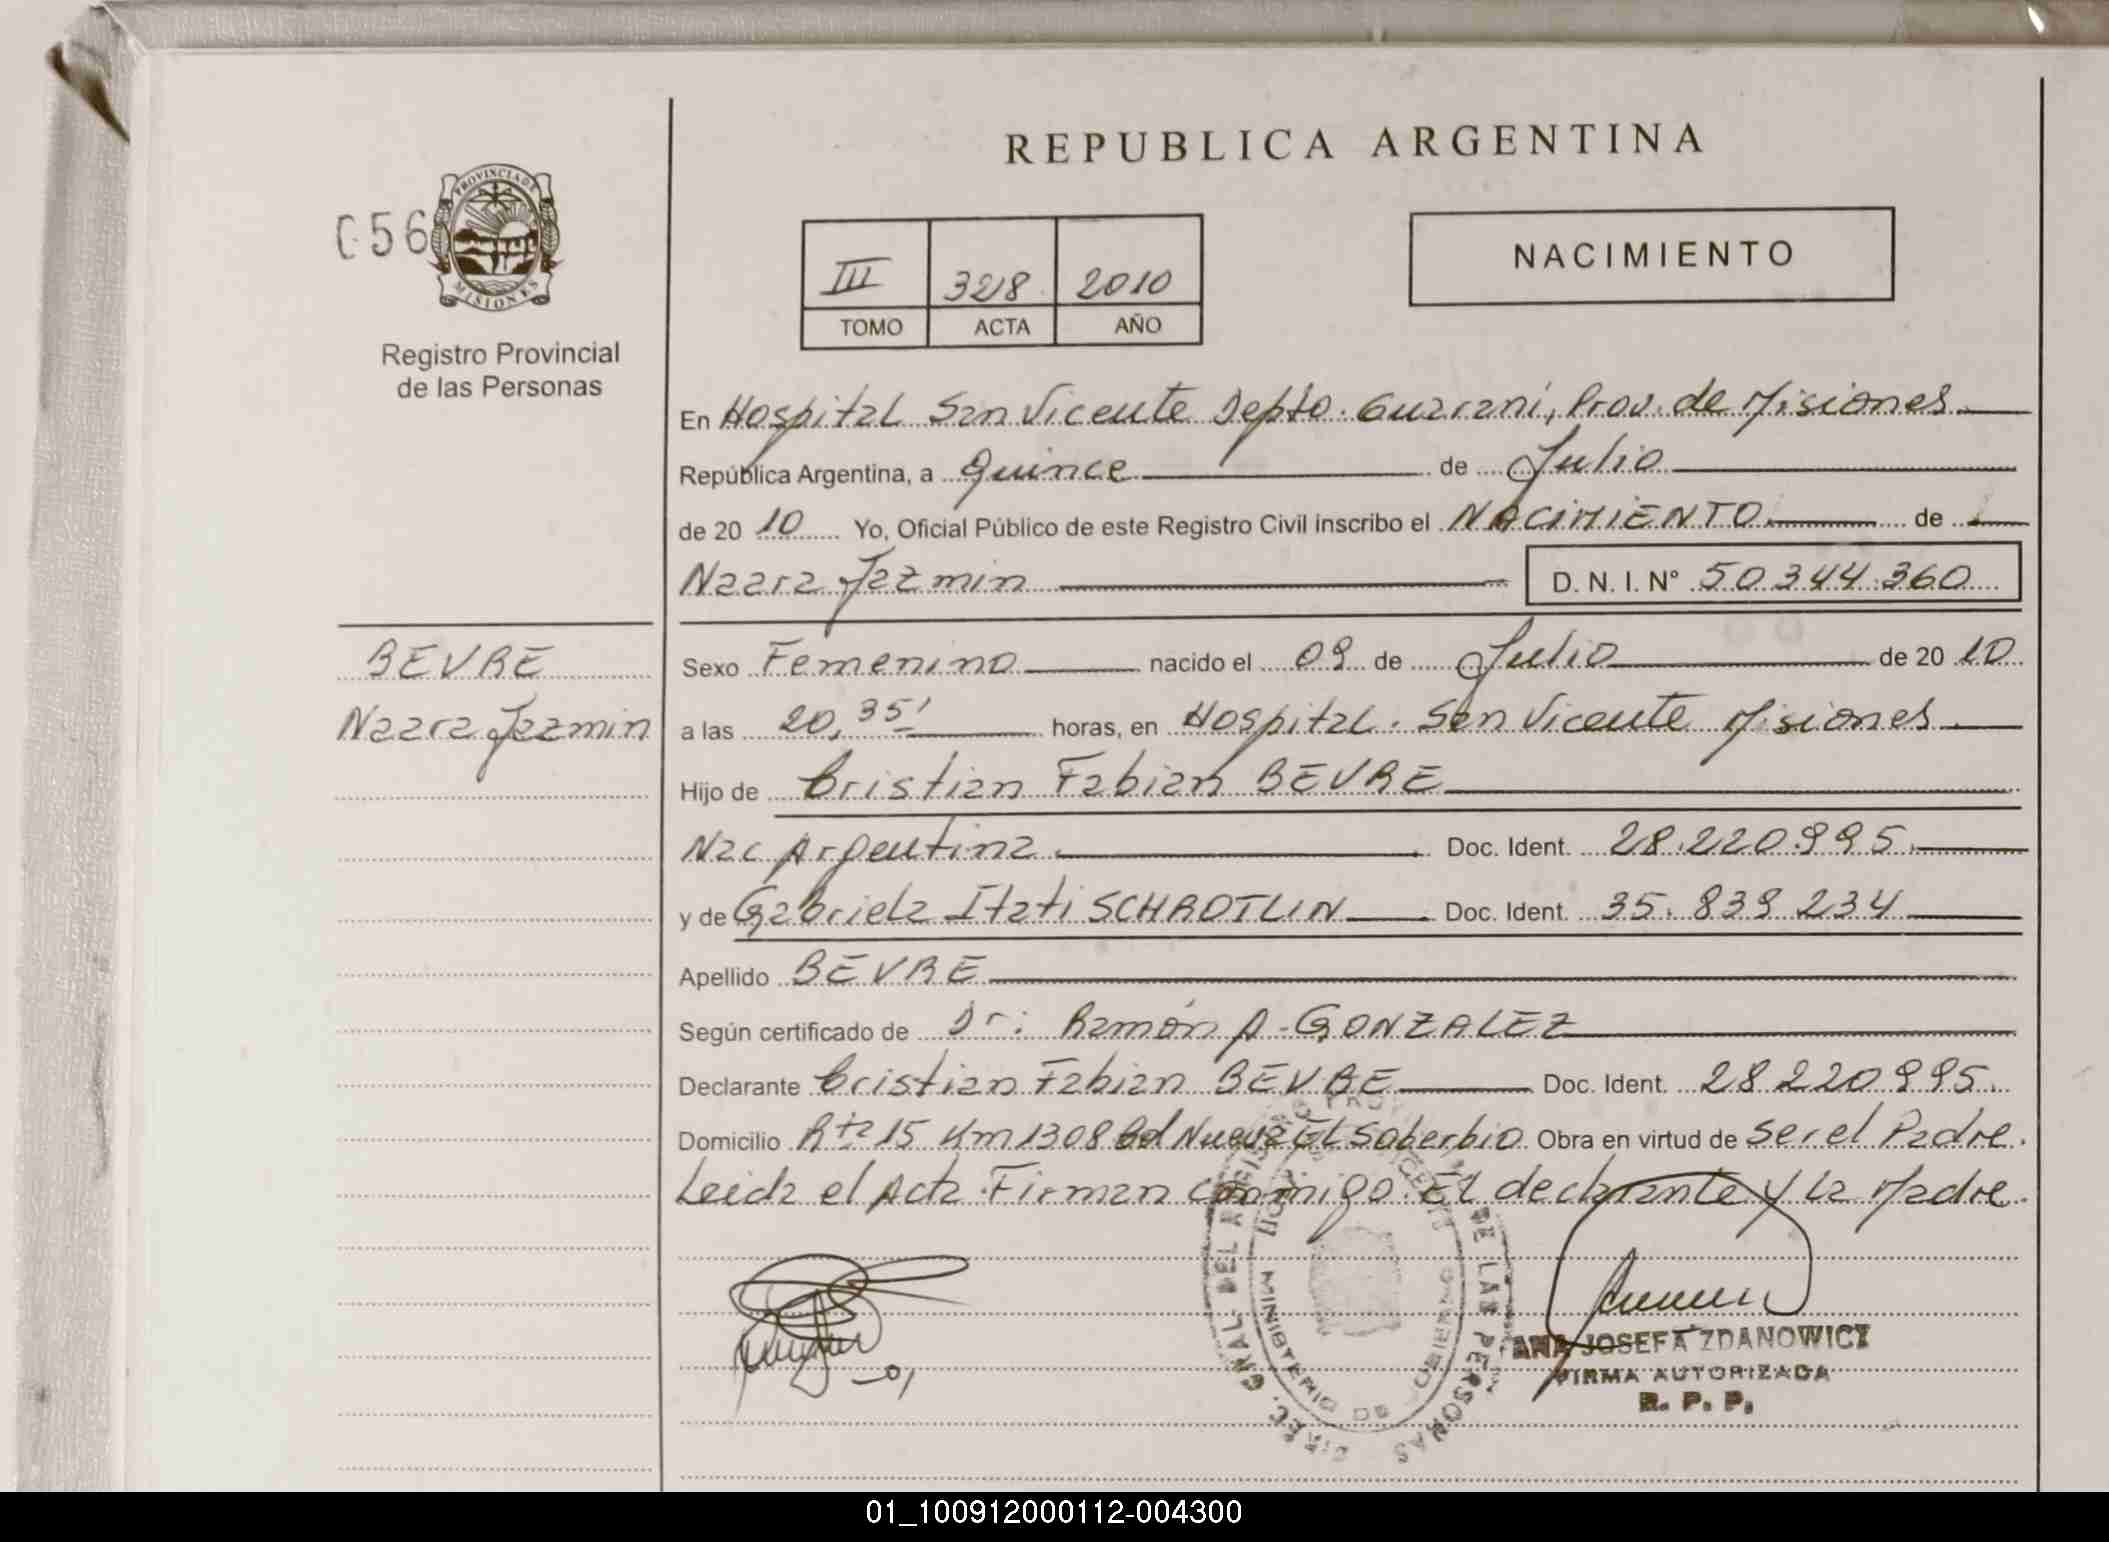 REPUBLICA ARGENTINA
056
PROVINCIA DE
MISIONES
Registro Provincial
de las Personas
III 328 2010
TOMO ACTA AÑO
NACIMIENTO
En Hospital San Vicente Depto. Guarani, Prov. de Misiones
República Argentina, a Quince de Julio
de 20 10 Yo, Oficial Público de este Registro Civil inscribo el NACIMIENTO de
Naara Jazmin D. N. I. N° 50.344.360
BEVRE
Naara Jazmin
Sexo Femenino nacido el 09 de Julio de 20 10
a las 20,35' horas, en Hospital. San Vicente Misiones
Hijo de Cristian Fabian BEVRE
Nac Argentina. Doc. Ident. 28.220.995.
y de Gabriela Itati SCHROTLIN Doc. Ident. 35.839 234
Apellido BEVRE
Según certificado de Dr: Ramón A. GONZALEZ
Declarante Cristian Fabian BEVRE Doc. Ident. 28 220 995.
Domicilio Rta 15 Km 1308 Nueva El Soberbio Obra en virtud de ser el Padre.
Leida el Acta. Firman conmigo. El declarante y la Madre.
DIREC. GRAL. DEL REGISTRO DE LAS PERSONAS
MINISTERIO DE GOBIERNO
ANA JOSEFA ZDANOWICZ
FIRMA AUTORIZADA
R. P. P.
01_100912000112-004300